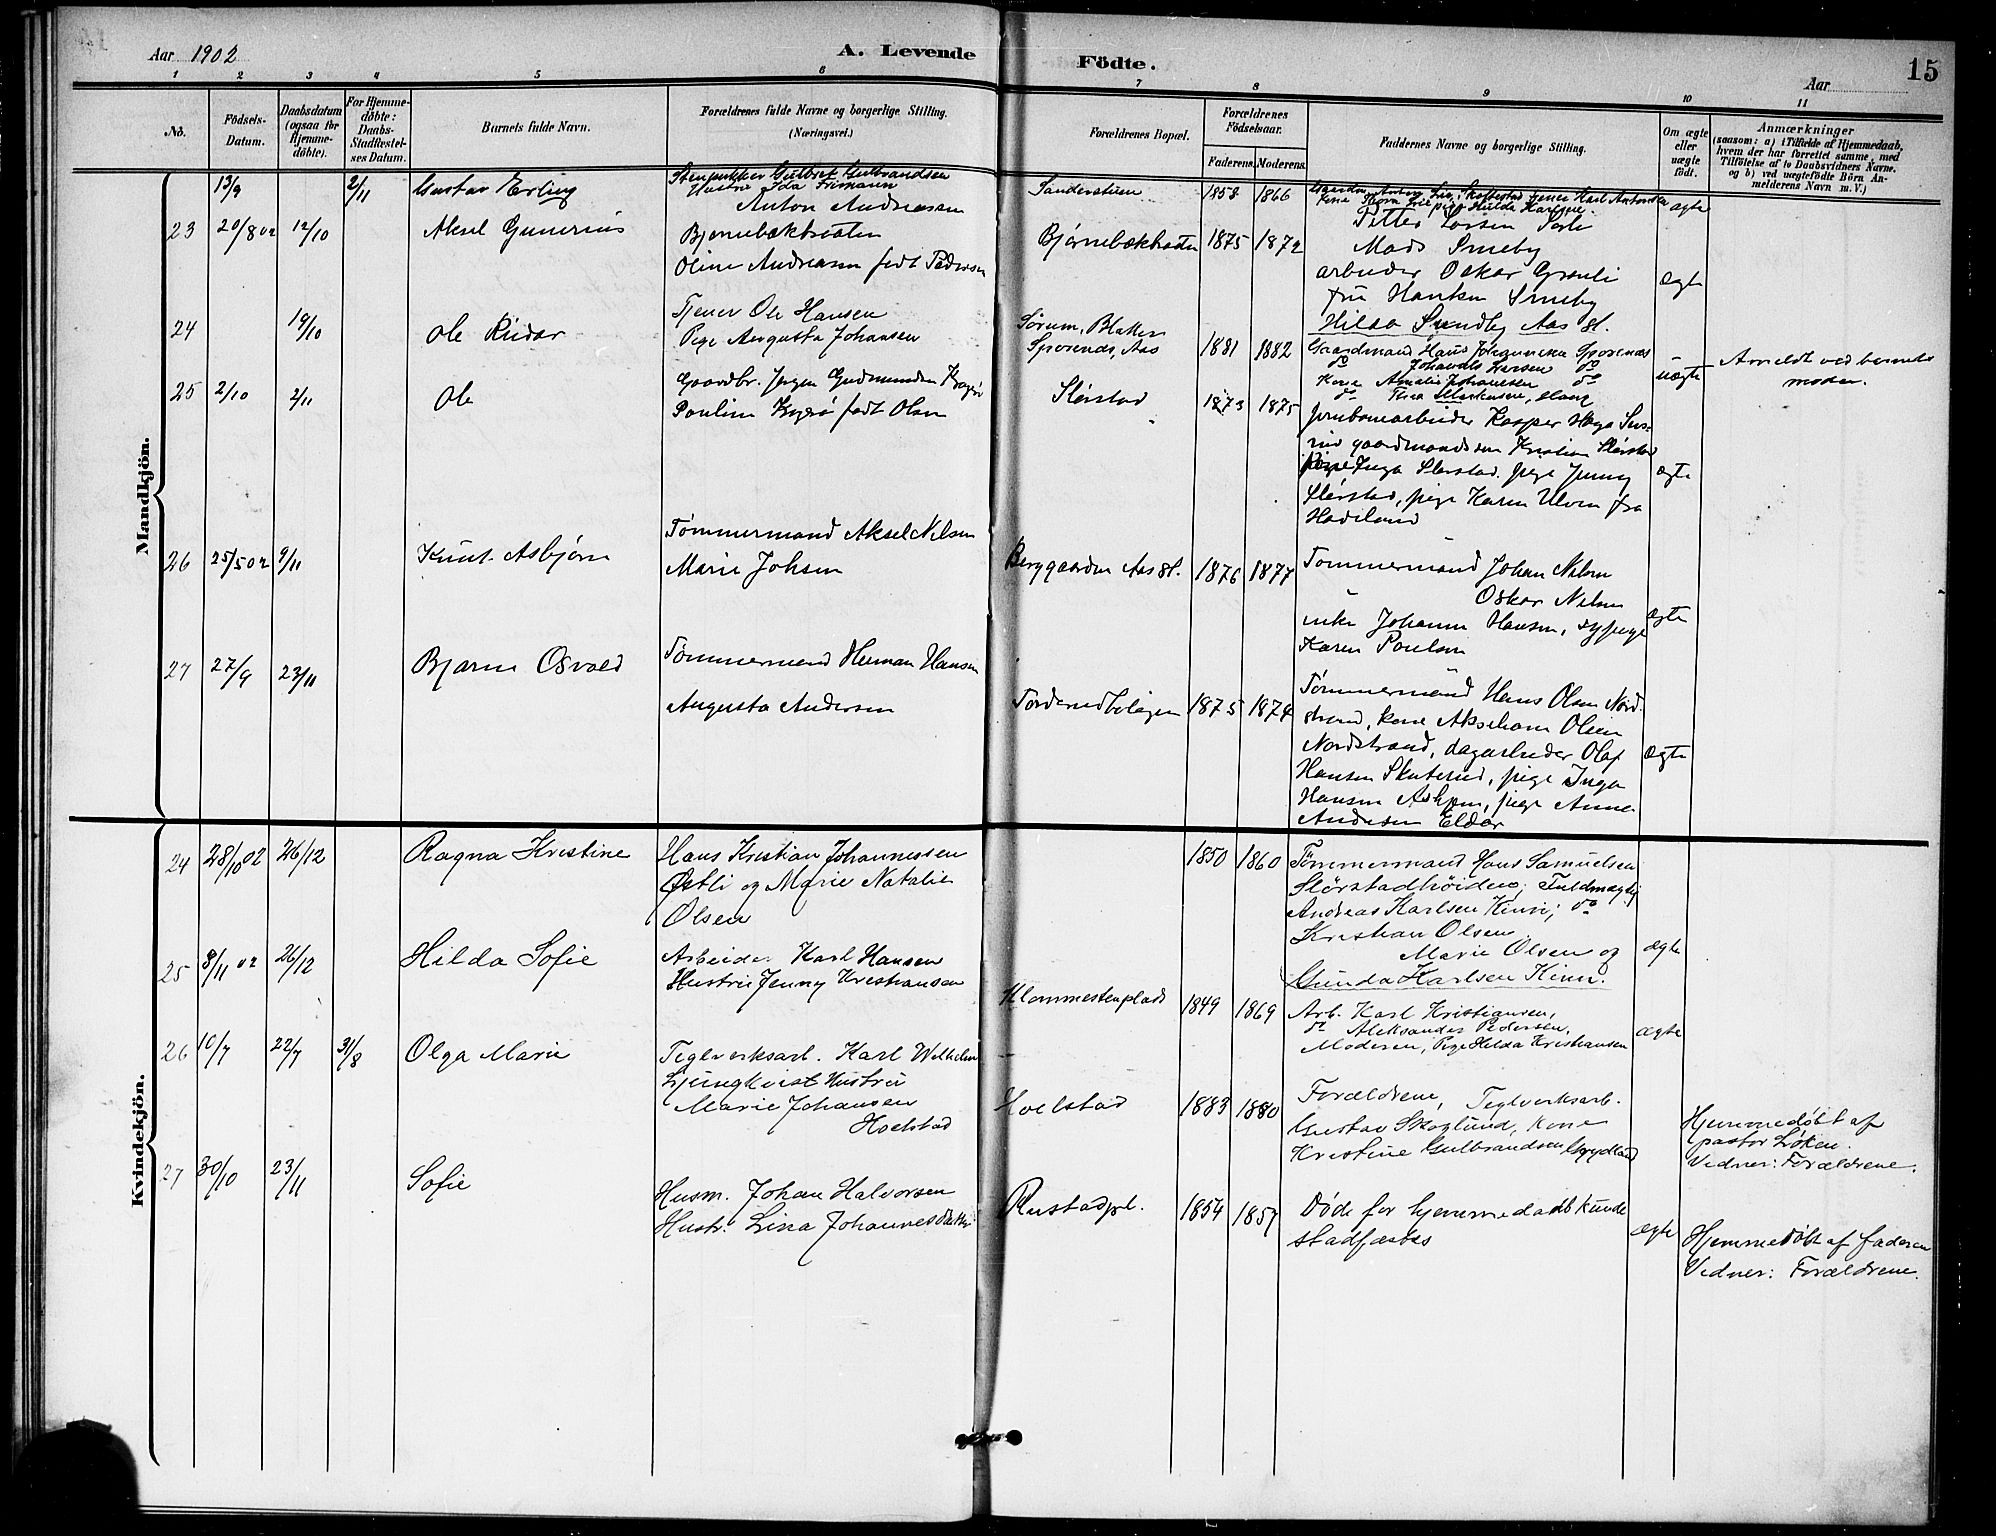 Aar 1902
A. Levende
Födte.
Aar
15
1 2 3 4 5 6 7 8 9 10 11
No.
Födsels-
Datum.
Daabsdatum
(ogsaa for
Hjemme-
döbte).
For Hjemme-
döbte:
Daabs-
Stadfæstel-
ses Datum.
Barnets fulde Navn.
Forældrenes fulde Navne og borgerlige Stilling.
(Næringsvei.)
Forældrenes Bopæl.
Forældrenes
Födselsaar.
Faderens. Moderens.
Faddernes Navne og borgerlige Stilling.
Om ægte
eller
uægte
födt.
Anmærkninger
(saasom: a) i Tilfælde af Hjemmedaab,
hvem der har forrettet samme, med
Tilföielse af to Daabsvidners Navne.
og b) ved uægtefödte Börn An-
melderens Navn m. V.)
Mandkjön.
13/9 2/11 Gustav Erling
Gulbrandsen
Hustru Ida
Sanderstuen 1858 1866
ægte
23 20/8 02 12/10 Aksel Gunerius
Anton Andreasen
Bjørnebækbraaten
Oline Andreasen født Pedersen
Bjørnebækbraaten 1875 1872
Petter Larsen
Mads Smeby
arbeider Oskar
fru Smeby
Hilda Sundby Aas st.
ægte
24 19/10 Ole Reidar
Tjener Ole Hansen
Pige Augusta Johansen
Sørum, Blaker
Sporenæs, Aas 1881 1882
Gaardmand Hans Johannesen Sporenæs
do do
Kone Amalie Johannesen do
do
uægte
Anmeldt ved barnets
moder.
25 2/10 2/11 Ole
Gaardbr. Jørgen Gudmundsen
Pauline født Olsen
Slørstad 1873 1875
Jernbanearbeider Kasper Haga
gaardmandssøn Kristian Slørstad
Inga Slørstad, pige Jenny
Slørstad, pige Karen Ulven fra
Hadeland
ægte
26 25/5 02 9/11 Knut Asbjørn
Tømmermand Aksel Nilsen
Marie Johsen
Berggaarden Aas st. 1876 1877
Tømmermand Johan Nilsen
" Oskar Nilsen
enke Johanne Hansen, sypige
Karen Poulsen
ægte
27 27/9 23/11 Bjarne Osvald
Tømmermand Herman Hansen
Augusta Andersen
1875 1874
Tømmermand Hans Olsen Nord-
strand, kone Olsen
Nordstrand, dagarbeider Olaf
Hansen Skuterud, pige Inga
Hansen Askjem, pige Anna
Andersen Eldor
ægte
Kvindekjön.
24 28/10 02 26/12 Ragna Kristine
Hans Kristian Johannessen
Østli og Marie Natalie
Olsen
1850 1860
Tømmermand Hans Samuelsen
Slørstadhøiden; Fuldmægtig
Andreas Karlsen Kinn; do
Kristian Olsen
Marie Olsen og
Gunda Karlsen Kinn.
ægte
25 8/11 02 26/12 Hilda Sofie
Arbeider Karl Hansen
Hustru Jenny Kristiansen
Klommestenplads 1849 1869
Arb. Karl Kristiansen,
do Aleksander Pedersen,
Moderen, Pige Hilda Kristiansen
ægte
26 10/7 22/7 31/8 Olga Marie
Teglverksarb. Karl Wilhelm
Ljungkvist Hustru
Marie Johansen
Hoelstad
Hoelstad 1883 1880
Forældrene, Teglverksarb.
Gustav Skoglund, Kone
Kristine Gulbrandsen
Hjemmedøbt af
pastor Løken.
Vidner: Forældrene.
27 30/10 23/11 Sofie
Husm. Johan Halvorsen
Hustr. Lina Johannesdatter
Rustadpl. 1854 1857
Døde før hjemmedaab kunde
stadfæstes
ægte
Hjemmedøbt af faderen
Vidner: Forældrene.